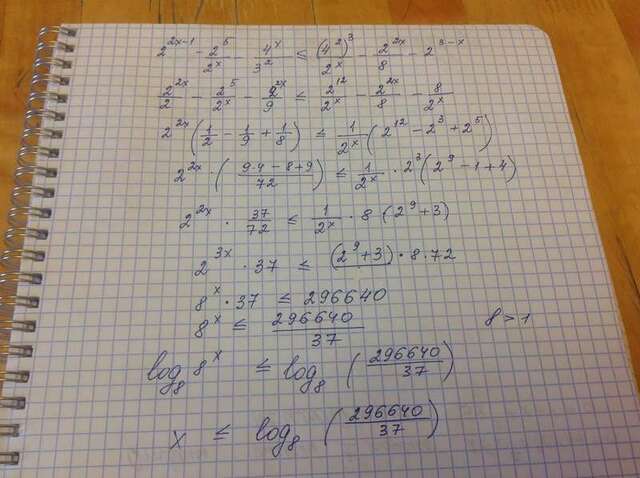 2^{2x-1} - \frac{2^5}{2^x} - \frac{4^x}{3^2} ≤ \frac{(4^2)^3}{2^x} - \frac{2^{2x}}{8} - 2^{3-x}
\frac{2^{2x}}{2} - \frac{2^5}{2^x} - \frac{2^{2x}}{9} ≤ \frac{2^{12}}{2^x} - \frac{2^{2x}}{8} - \frac{8}{2^x}
2^{2x} (\frac{1}{2} - \frac{1}{9} + \frac{1}{8}) ≤ \frac{1}{2^x} (2^{12} - 2^3 + 2^5)
2^{2x} · (\frac{9·4 - 8 + 9}{72}) ≤ \frac{1}{2^x} · 2^3 (2^9 - 1 + 4)
2^{2x} · \frac{37}{72} ≤ \frac{1}{2^x} · 8 · (2^9 + 3)
2^{3x} · 37 ≤ (2^9 + 3) · 8 · 72
8^x · 37 ≤ 296640
8^x ≤ \frac{296640}{37} 8 > 1
log_8 8^x ≤ log_8 (\frac{296640}{37})
x ≤ log_8 (\frac{296640}{37})